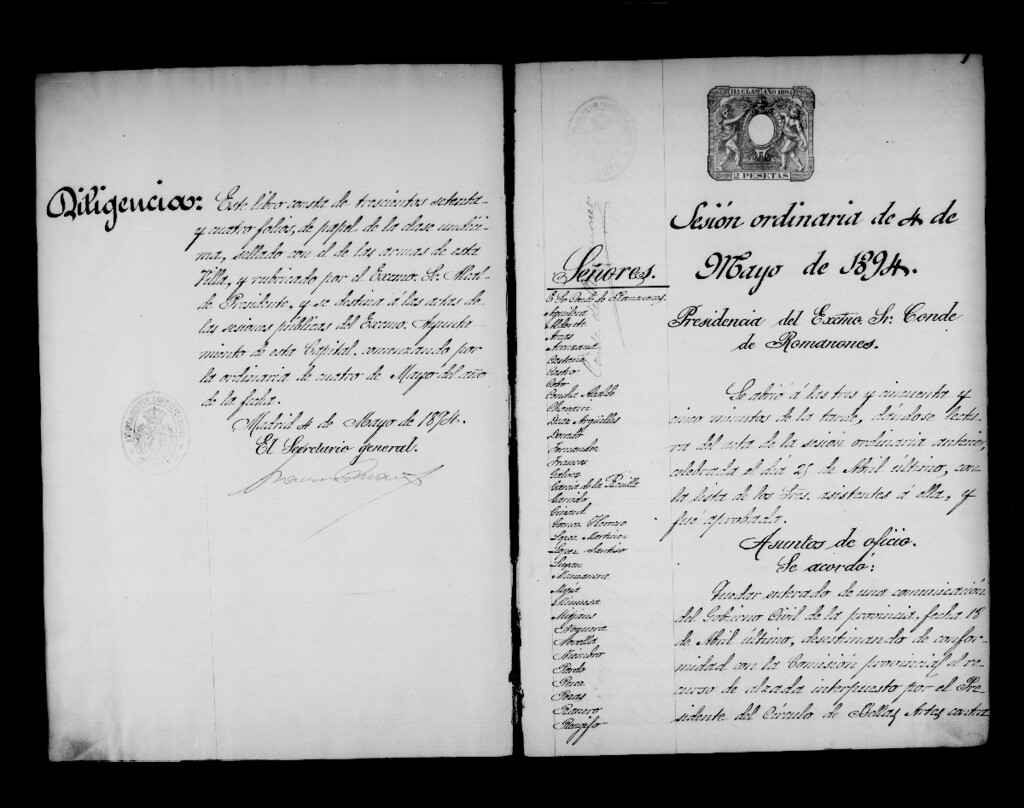 Diligencia: Este libro consta de trescientos setenta
y cuatro folios, de papel de la clase undéci-
ma, sellado con el de las armas de esta
Villa, y rubricado por el Excmo. Sr. Alcal-
de Presidente, y se destina á las actas de
las sesiones públicas del Excmo. Ayunta-
miento de esta Capital, comenzando por
la ordinaria de cuatro de Mayo del año
de la fecha.
Madrid 4 de Mayo de 1894.
El Secretario general.
AÑO 1894
2 PESETAS
Sesión ordinaria de 4 de
Mayo de 1894.
Presidencia del Excmo. Sr. Conde
de Romanones.
Señores.
E. Sr. Conde de Romanones.
Aguilera
Arcas
Castro
Concha Alcalde
Diaz Argüelles
Dorado
Fernandez
Francos
Galvez
Garcia de la
Garrido
Gomez Herrero
Lopez Martinez
Lopez
Manzanera
Mejia
Minuesa
Mitjans
Noguera
Novella
Pardo
Perez
Ranero
Rengifo
Se abrió á las tres y cincuenta y
cinco minutos de la tarde, dándose lectu-
ra del acta de la sesión ordinaria anterior,
celebrada el día 25 de Abril último, con
la lista de los Sres. asistentes á ella, y
fué aprobada.
Asuntos de oficio.
Se acordó:
Quedar enterado de una comunicación
del Gobierno Civil de la provincia, fecha 18
de Abril último, desestimando de confor-
midad con la Comisión provincial el re-
curso de alzada interpuesto por el Pre-
sidente del Círculo de Bellas Artes contra